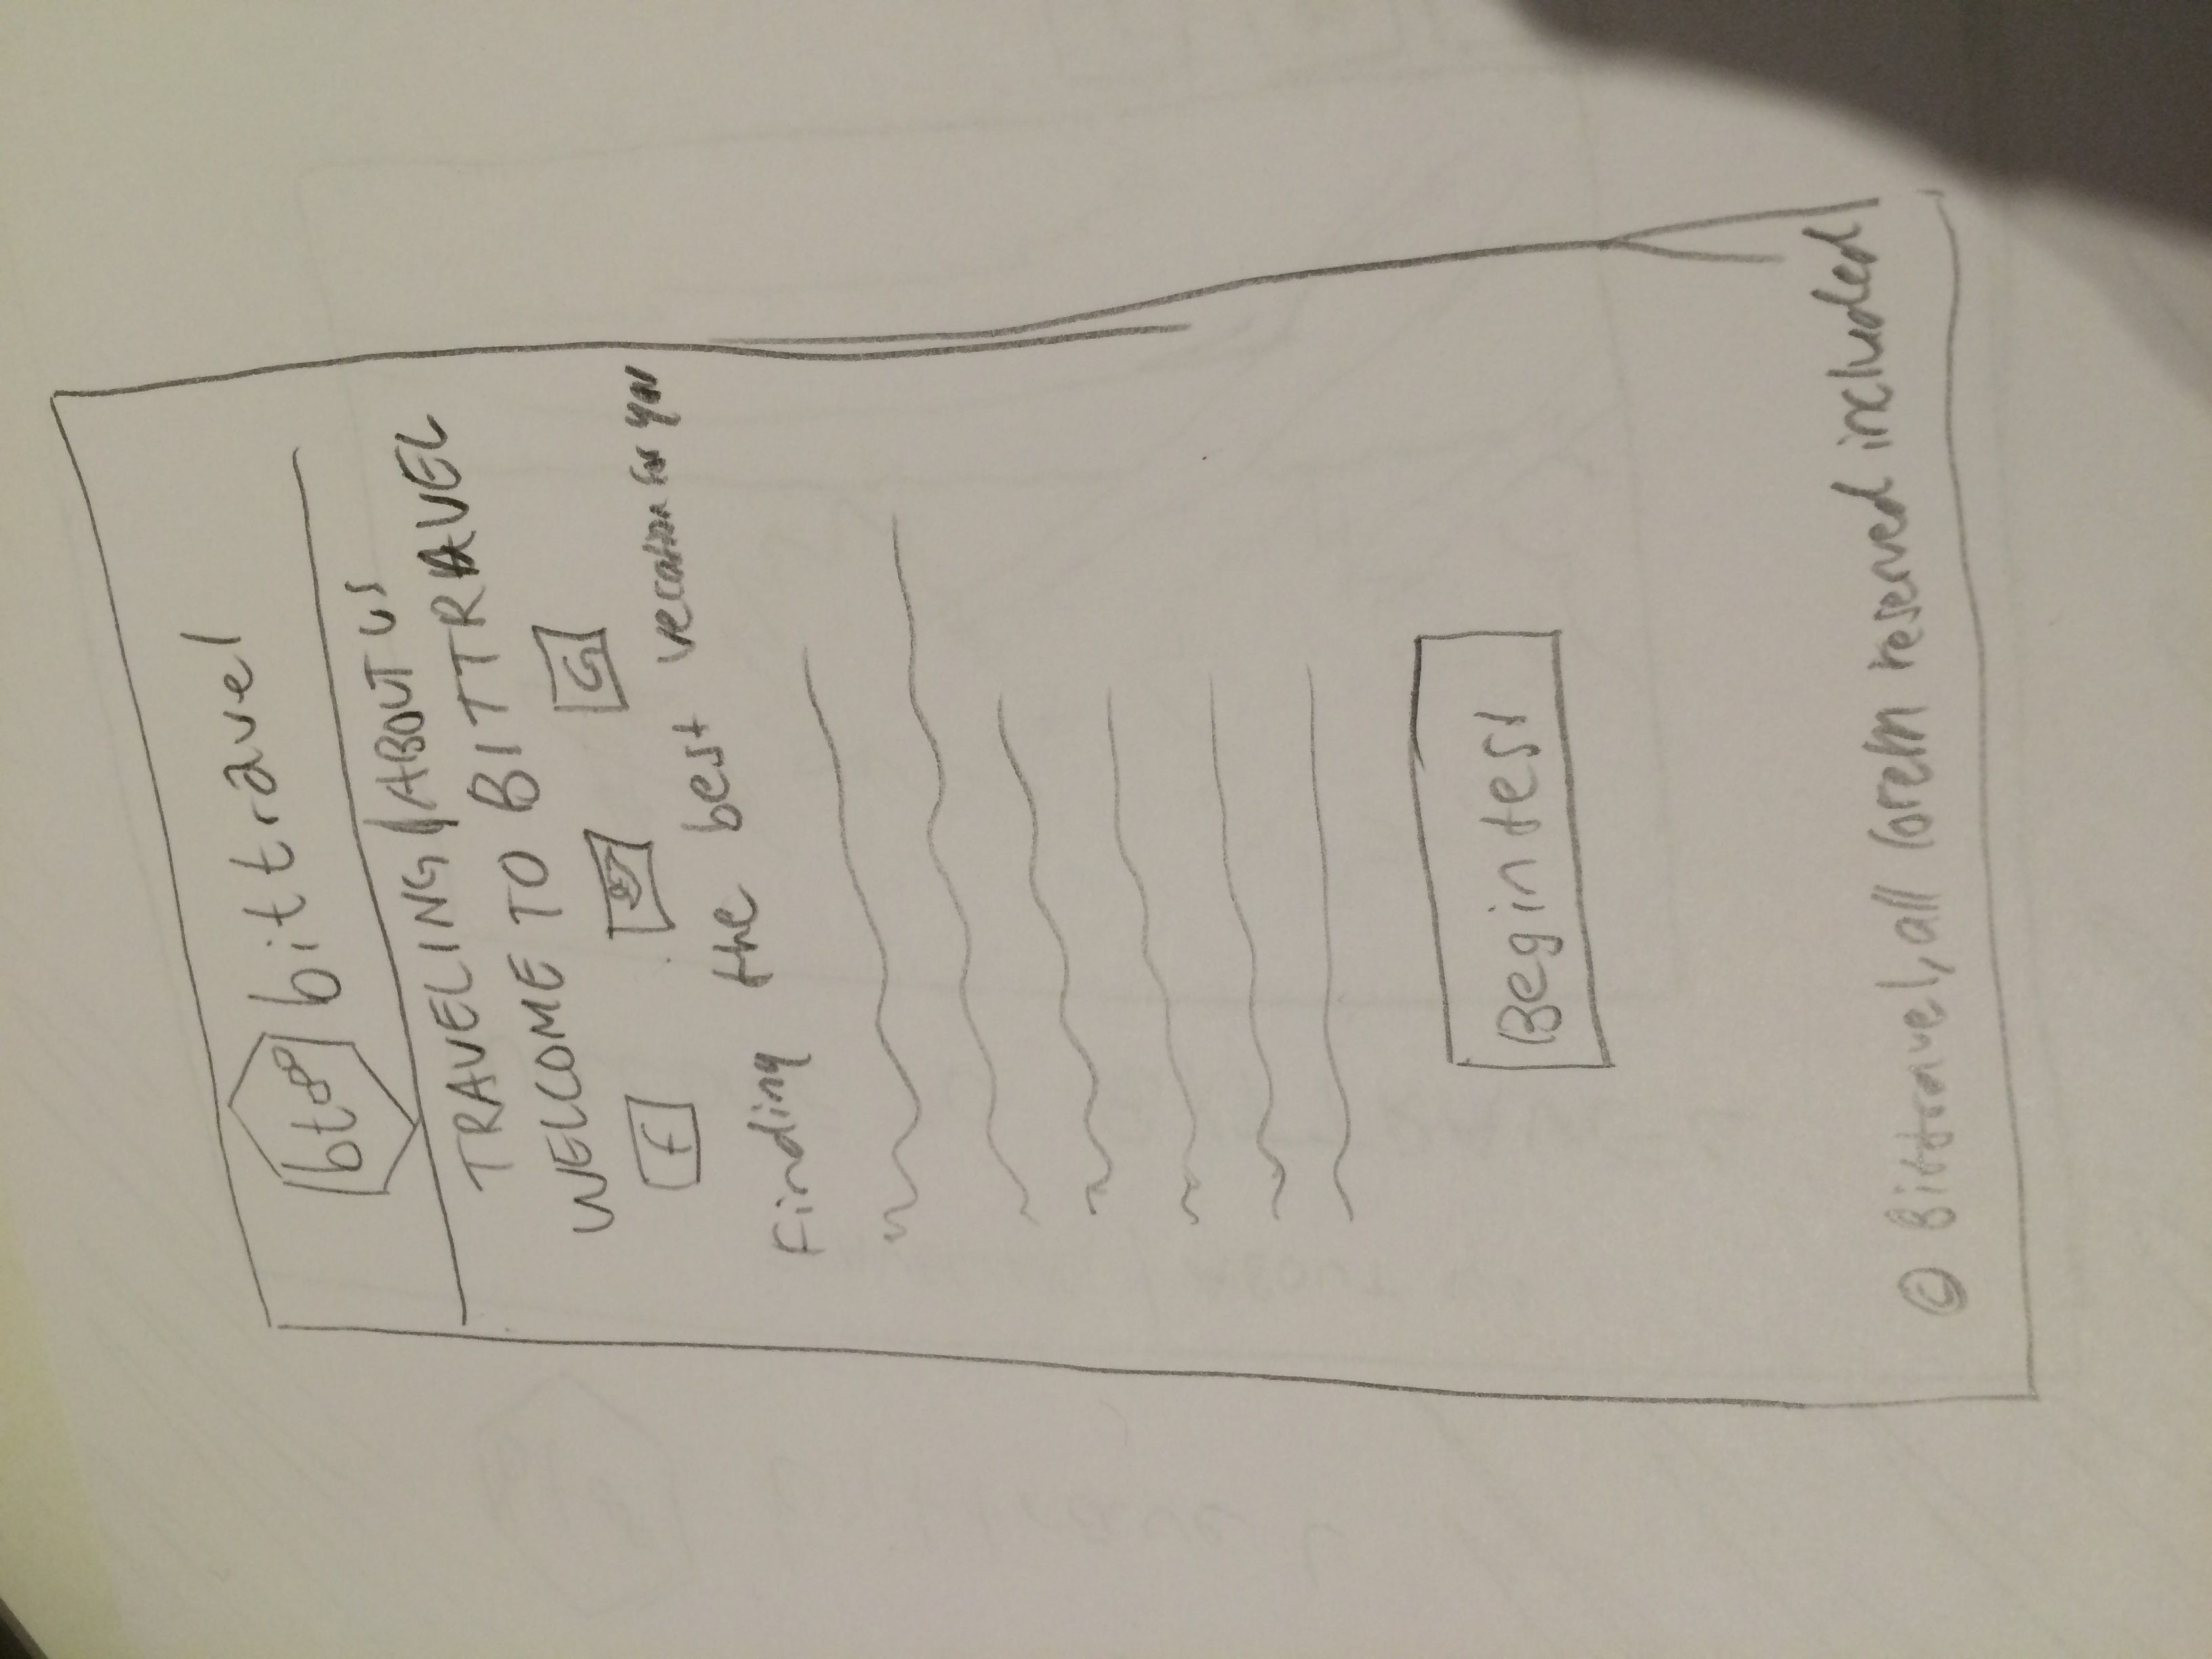 bt bittravel
TRAVELING | ABOUT US
WELCOME TO BITTRAVEL
f G
Finding the best vecation for you
Begin test
© Bittravel, all lorem reserved included